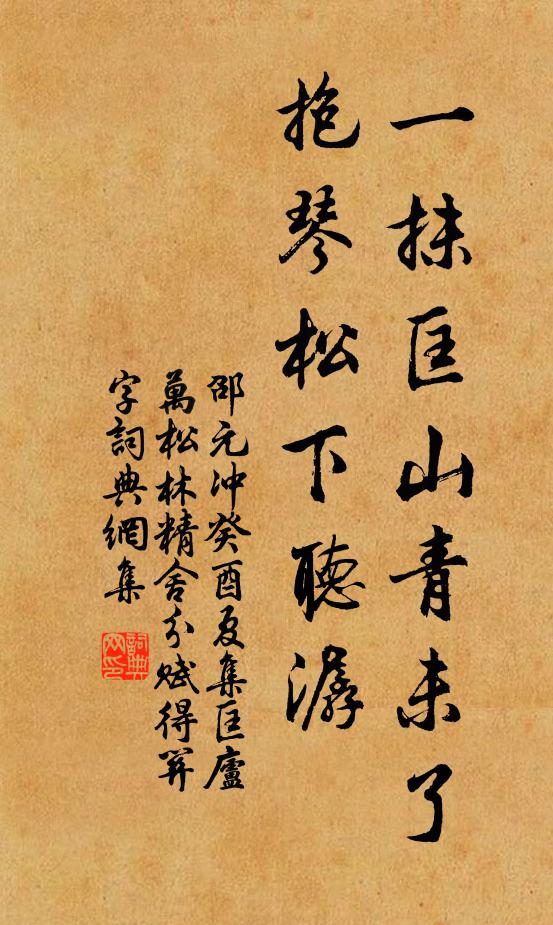 一抹匡山青未了
抱琴松下聽潺
邵元沖癸酉夏集匡廬
萬松林精舍分賦得
字詞典網集
詞典
网印